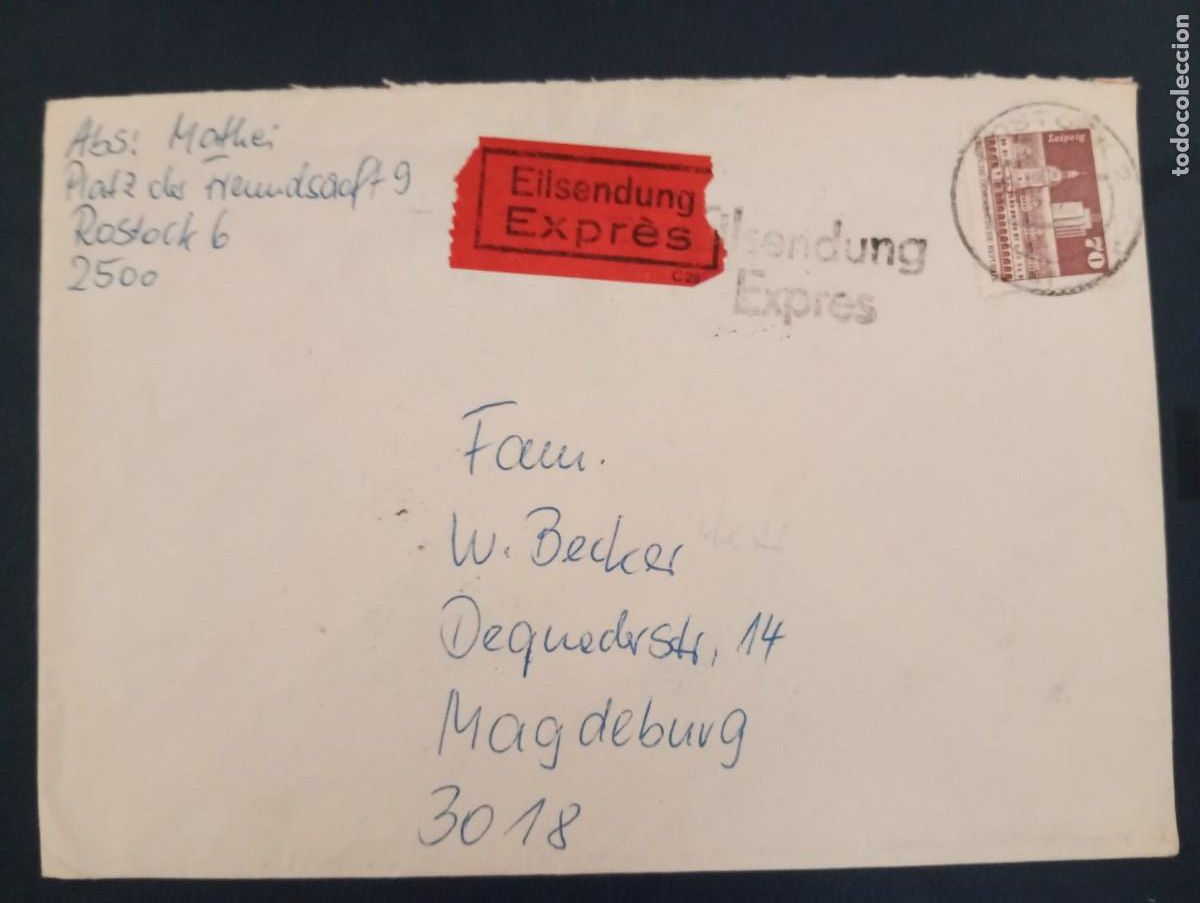 Abs: Mathei
Platz der Freundschaft 9
Rostock 6
2500
Eilsendung
Exprès
C 28
Eilsendung
Expres
Leipzig
70
Fam.
W. Becker
Dequederstr, 14
Magdeburg
3018
todocoleccion